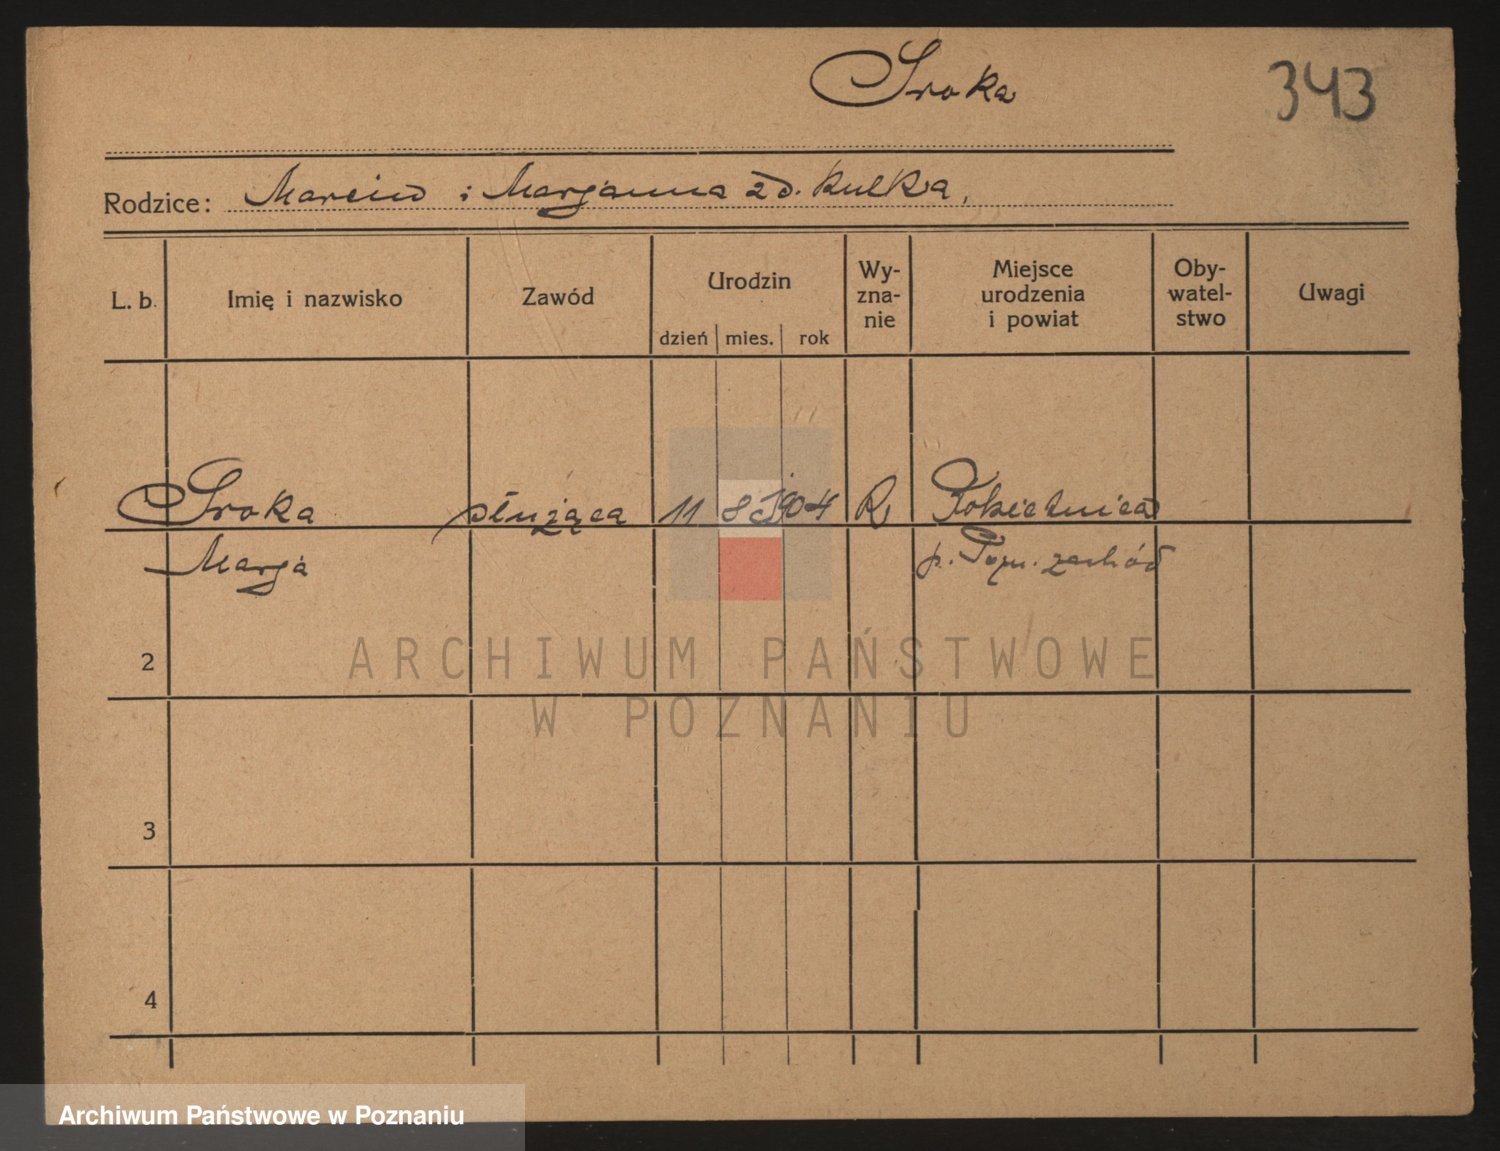 Sroka
343
Rodzice: Marcin i Marjanna zd. Kulka,
L. b.
Imię i nazwisko
Zawód
Urodzin
dzień mies. rok
Wy-
zna-
nie
Miejsce
urodzenia
i powiat
Oby-
watel-
stwo
Uwagi
1 Sroka służąca 11 8 904 R Rokietnica
Marja p. Pozn. zachód
2
3
4
ARCHIWUM PAŃSTWOWE
W POZNANIU
Archiwum Państwowe w Poznaniu